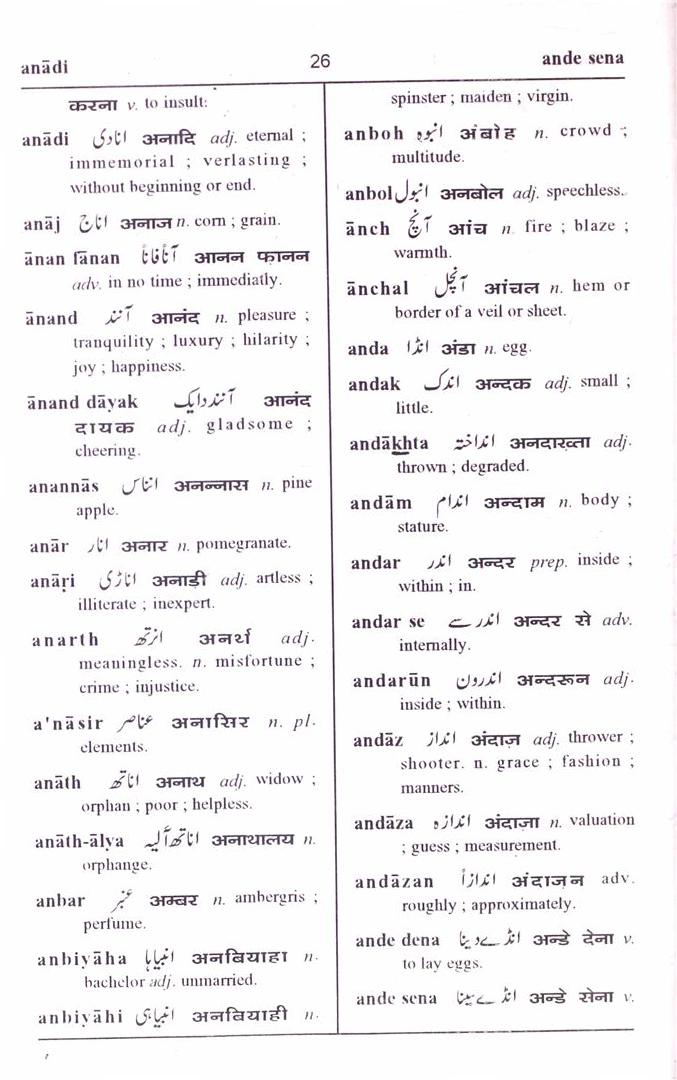 anādi
26
ande sena
करना v. to insult:
anādi انادی अनादि adj. eternal ;
immemorial ; verlasting ;
without beginning or end.
anāj اناج अनाज n. corn ; grain.
ānan fānan آناًفاناً आनन फानन
adv. in no time ; immediatly.
ānand آنند आनंद n. pleasure ;
tranquility ; luxury ; hilarity ;
joy ; happiness.
ānand dāyak آنند دایک आनंद
दायक adj. gladsome ;
cheering.
anannās انناس अनन्नास n. pine
apple.
anār انار अनार n. pomegranate.
anāri اناڑی अनाड़ी adj. artless ;
illiterate ; inexpert.
anarth انرتھ अनर्थ adj.
meaningless. n. misfortune ;
crime ; injustice.
a'nāsir عناصر अनासिर n. pl.
elements.
anāth اناتھ अनाथ adj. widow ;
orphan ; poor ; helpless.
anāth-ālya اناتھ آلیہ अनाथालय n.
orphange.
anbar عنبر अम्बर n. ambergris ;
perfume.
anbiyāha انبیاہا अनबियाहा n.
bachelor adj. unmarried.
anbiyāhi انبیاہی अनबियाही n.
spinster ; maiden ; virgin.
anboh انبوہ अंबोह n. crowd ;
multitude.
anbol انبول अनबोल adj. speechless.
ānch آنچ आंच n. fire ; blaze ;
warmth.
ānchal آنچل आंचल n. hem or
border of a veil or sheet.
anda انڈا अंडा n. egg.
andak اندک अन्दक adj. small ;
little.
andākhta انداختہ अनदाख्ता adj.
thrown ; degraded.
andām اندام अन्दाम n. body ;
stature.
andar اندر अन्दर prep. inside ;
within ; in.
andar se اندر سے अन्दर से adv.
internally.
andarūn اندرون अन्दरून adj.
inside ; within.
andāz انداز अंदाज़ adj. thrower ;
shooter. n. grace ; fashion ;
manners.
andāza اندازہ अंदाज़ा n. valuation
; guess ; measurement.
andāzan اندازاً अंदाज़न adv.
roughly ; approximately.
ande dena انڈے دینا अन्डे देना v.
to lay eggs.
ande sena انڈے سینا अन्डे सेना v.